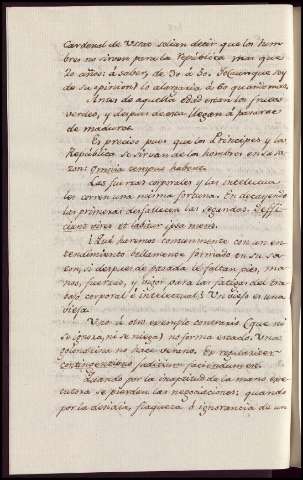 Cardenal de Usac solian decir que los hom-
bres no sirven para la República mas que
20 años: á saber, de 30 á 50. Yo (aunque soy
de su opinion) lo alargaria á 60 quando mas.
Antes de aquella edad eran los frutos
verdes, y despues de esta llegan á pasarse
de maduros.
Es preciso pues que los Principes y las
Repúblicas se sirvan de los hombres en sa-
zon: Omnia tempus habent.
Las fuerzas corporales y las intelectua-
les corren una misma fortuna. En decayendo
las primeras desfallecen las segundas. Deffi-
ciunt vires et labitur ipsa mens.
¿Qué haremos comunmente con un en-
tendimiento bellamente formado en su sa-
zon, si despues de pasada le faltan pies, ma-
nos, fuerzas, y vigor para las fatigas del tra-
bajo corporal é intelectual? Un viejo es una
vieja.
Uno ú otro exemplo contrario (que ni
se ignora, ni se niega) no forma estado. Una
golondrina no hace verano. Ex regulariter
contingentibus judicium faciendum est.
Quando por la ineptitud de la mano exe-
cutora se pierden las negociaciones: quando
por la desidia, flaqueza ó ignorancia de un